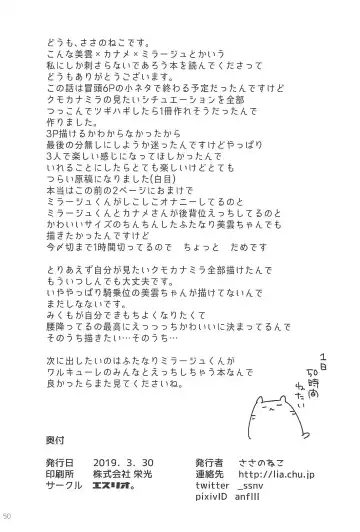 どうも、ささのねこです。
こんな美雲×カナメ×ミラージュとかいう
私にしか刺さらないであろう本を読んでくださって
どうもありがとうございます。
この話は冒頭6Pの小ネタで終わる予定だったんですけど
クモカナミラの見たいシチュエーションを全部
つっこんでツギハギしたら1冊作れそうだったんで
作りました。
3P描けるかわからなかったから
最後の分無しにしようか迷ったんですけどやっぱり
3人で楽しい感じになってほしかったんで
いれることにしたらとても楽しいけどとても
つらい原稿になりました(白目)
本当はこの前の2ページにおまけで
ミラージュくんがしこしこオナニーしてるのと
ミラージュくんとカナメさんが後背位えっちしてるのと
かわいいサイズのちんちんしたふたなり美雲ちゃんでも
描きたかったんですけど
今〆切まで1時間切ってるので　ちょっと　だめです

とりあえず自分が見たいクモカナミラ全部描けたんで
もういつしんでも大丈夫です。
いややっぱり騎乗位の美雲ちゃんが描けてないんで
まだしなないです。
みくもが自分できもちよくなりたくて
腰降ってるの最高にえっっっちかわいいに決まってるんで
そのうち描きたい…そのうち…

次に出したいのはふたなりミラージュくんが
ワルキューレのみんなとえっちしちゃう本なんで
良かったらまた見てくださいね。
1日
50時間
ねたい
奥付
発行日　2019. 3. 30
印刷所　株式会社 栄光
サークル　エスリオ。
発行者　ささのねこ
連絡先　http://lia.chu.jp/
twitter　_ssnv
pixivID　anflll
50